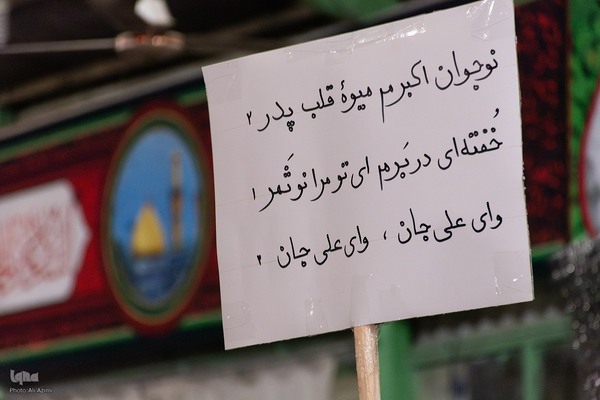 نوجوان اکبرم میوهٔ قلب پدر ۲
خُفته‌ای در بَرم ای تو مرا نو ثَمر ۱
وای علی جان ، وای علی جان ۲
iqna
Photo: Ali Azimi